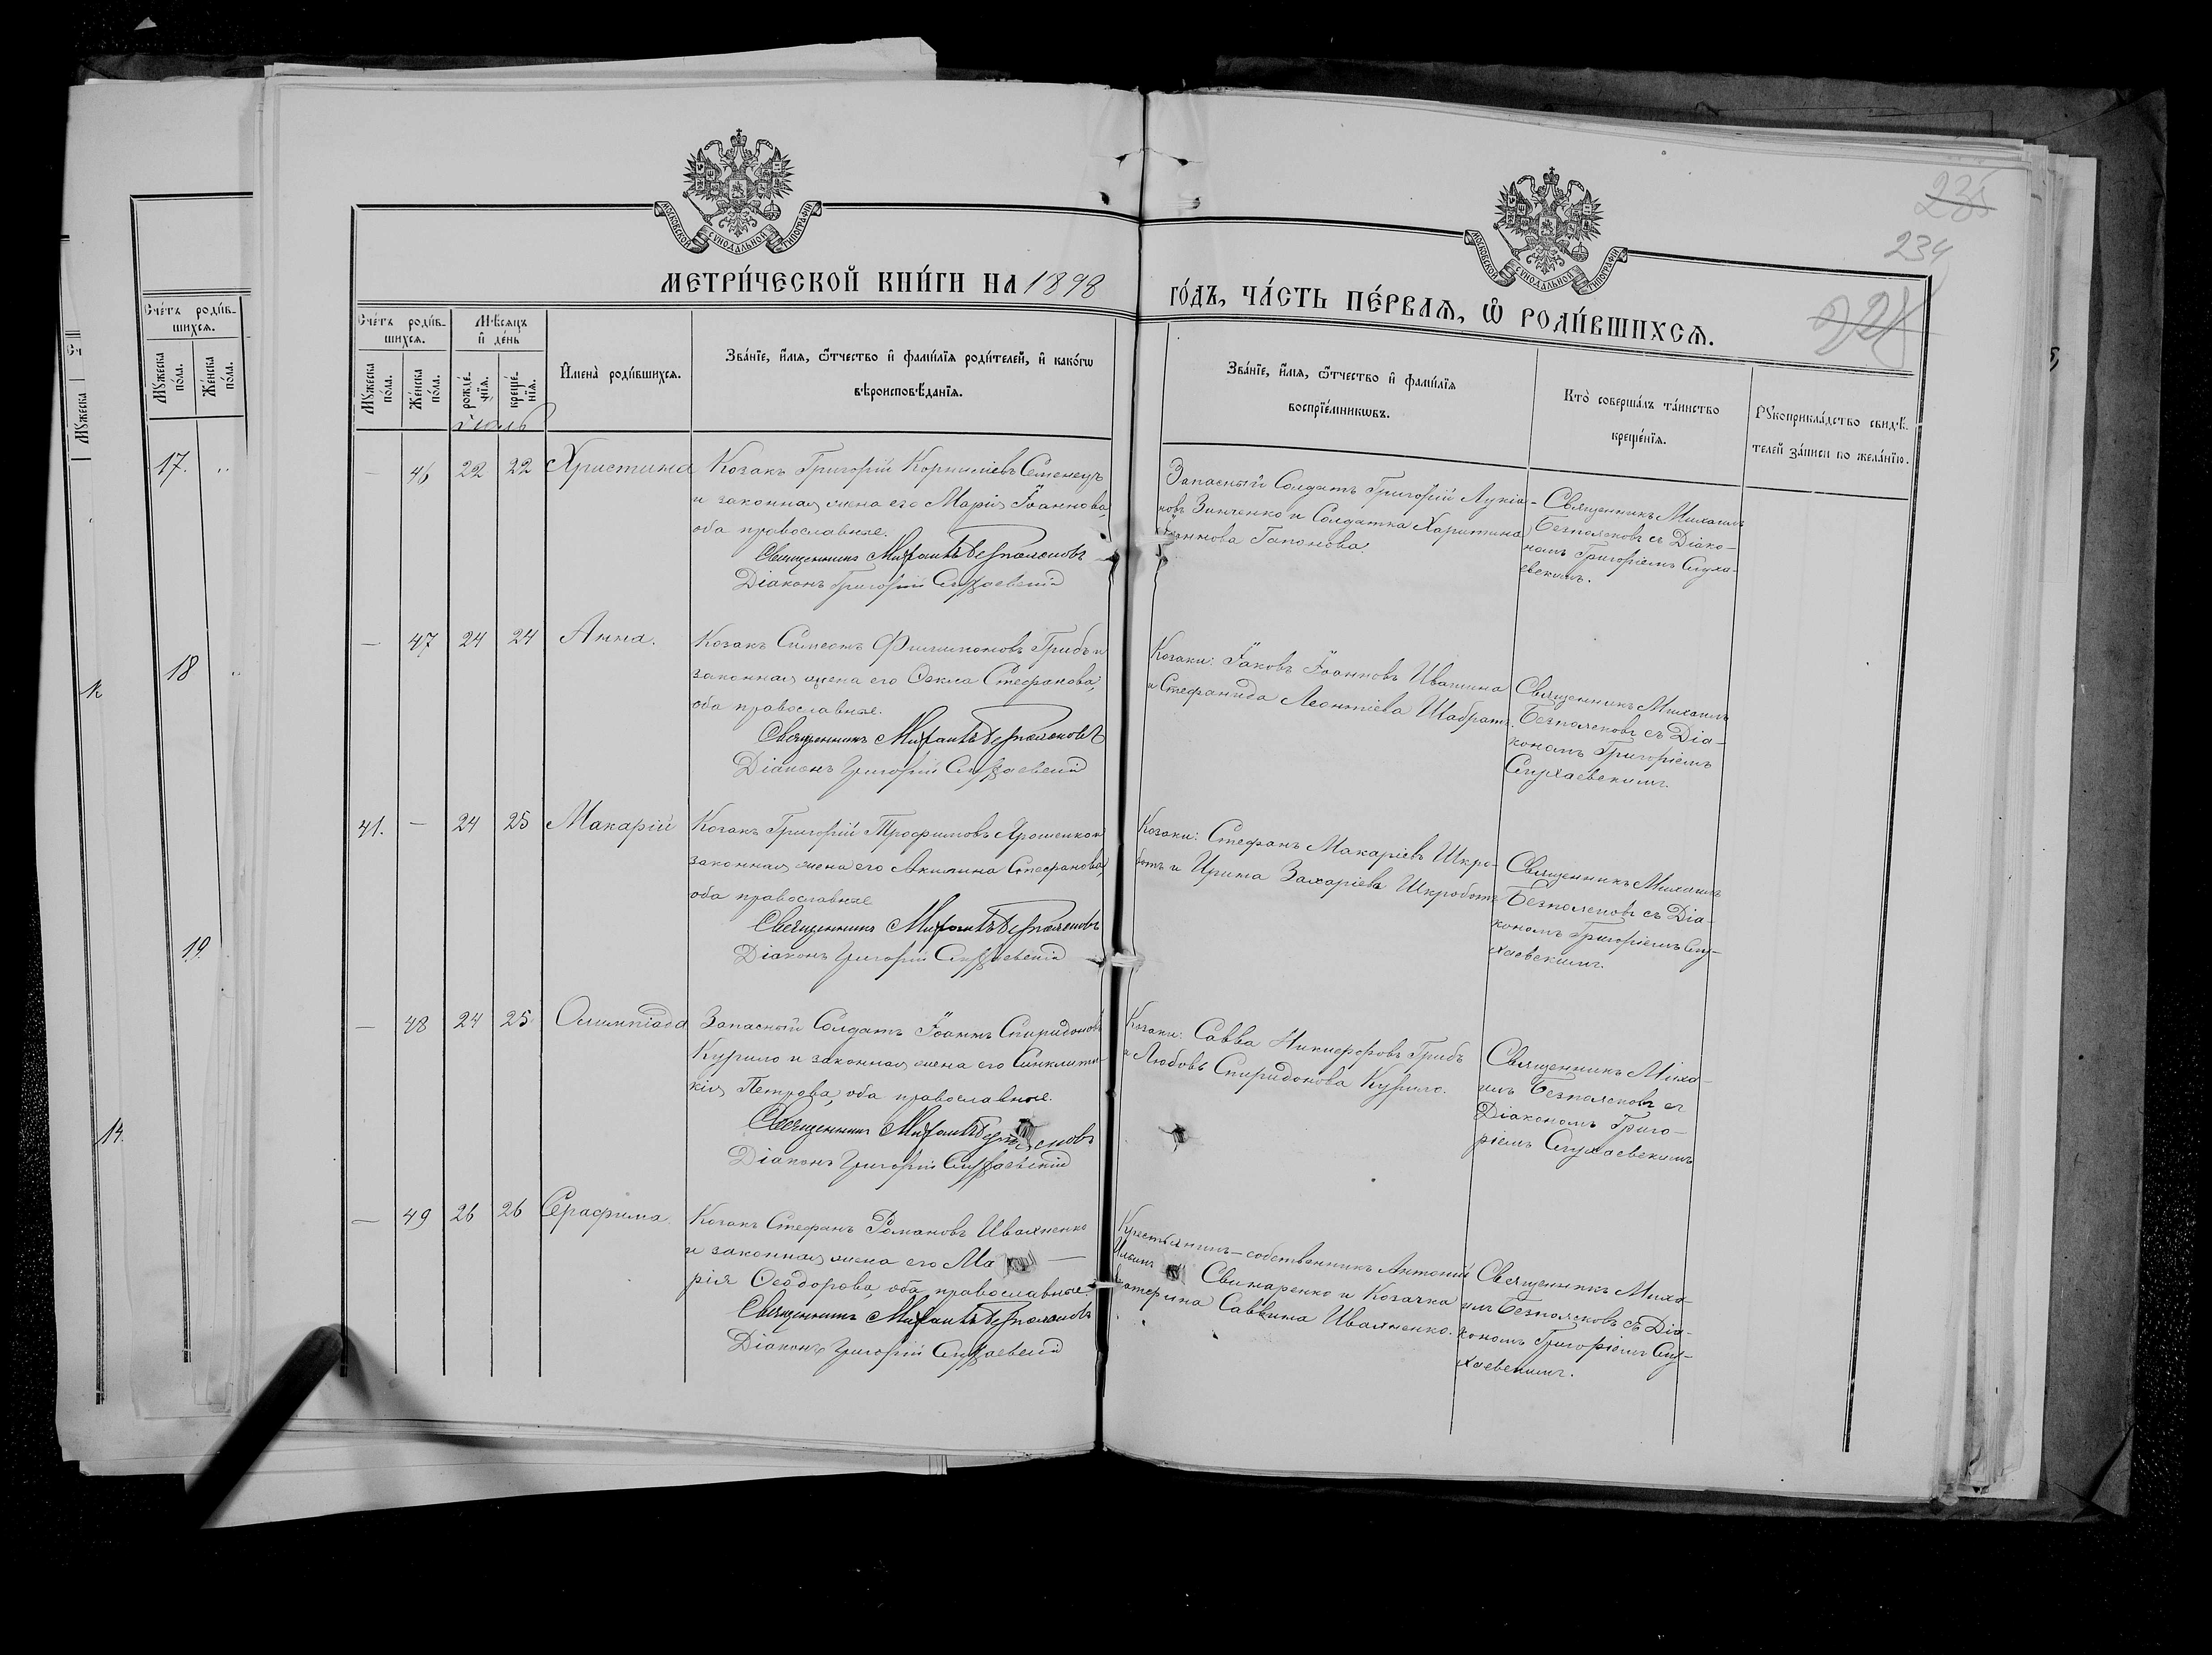 МОСКОВСКОЙ СУНОДАЛЬНОЙ ТИПОГРАФІИ
МОСКОВСКОЙ СУНОДАЛЬНОЙ ТИПОГРАФІИ
235
234
МЕТРИ́ЧЕСКОЙ КНИ́ГИ НА 1898
ГО́ДЪ, ЧА́СТЬ ПЕ́РВАЯ, Ѡ РОДИ́ВШИХСЯ.
Сче́тъ роди́в-
шихся.
Мꙋжеска по́ла.
Же́нска по́ла.
Мѣсяцъ
и де́нь
рожде́-нїя.
креще́-нїя.
Имена̀ роди́вшихся.
Зва́нїе, и́мя, ѻ҆́тчество и фами́лїя роди́телей, и како́гѡ
вѣроисповѣ́данїя.
Зва́нїе, и́мя, ѻ҆́тчество и фами́лїя
воспрїе́мникѡвъ.
Кто̀ соверша́лъ та́инство
креще́нїя.
Рꙋкоприкла́дство свидѣ́-
телей за́писи по жела́нїю.
Сче́тъ роди́в-
шихся.
Мꙋжеска по́ла.
Же́нска по́ла.
Мꙋжеска
17.
18
19
14.
Іюль
— 46 22 22 Христина
Козакъ Григорій Корниліевъ Семенецъ
и законная жена его Марія Іоаннова,
оба православные.
Священникъ Михаилъ Безпалековъ
Діаконъ Григорій Слухаевскій
Запасный Солдатъ Григорій Лукіа-
новъ Зинченко и Солдатка Харитина
Іоаннова Гапонова.
Священникъ Михаилъ
съ Діако-
номъ Григоріемъ Слуха-
евскимъ.
— 47 24 24 Анна.
Козакъ Симеонъ Филимоновъ Грибъ и
законная жена его Ѳекла Стефанова,
оба православные.
Священникъ Михаилъ
Діаконъ Григорій Слухаевскій
Козаки: Іаковъ Іоанновъ Ивашина
и Стефанида Леонтіева Шабратъ.
Священникъ Михаилъ
съ Діа-
кономъ Григоріемъ
Слухаевскимъ.
41. — 24 25 Макарій
Козакъ Григорій Трофимовъ Ярошенко и
законная жена его Акилина Стефанова,
оба православные
Священникъ Михаилъ
Діаконъ Григорій Слухаевскій
Козаки: Стефанъ Макаріевъ Шкро-
ботъ и Ирина Захаріева Шкроботъ
Священникъ Михаилъ
съ Діа-
кономъ Григоріемъ Слу-
хаевскимъ.
— 48 24 25 Олимпіада
Запасный Солдатъ Іоаннъ Спиридоновъ
Курило и законная жена его Синклити-
кія Петрова, оба православные.
Священникъ Михаилъ
Діаконъ Григорій Слухаевскій
Козаки: Савва Никифоровъ Грибъ
и Любовь Спиридонова Курило.
Священникъ Миха-
илъ съ
Діакономъ Григо-
ріемъ Слухаевскимъ
— 49 26 26 Серафима.
Козакъ Стефанъ Романовъ Ивахненко
и законная жена его Ма —
рія Ѳеодорова, оба православные.
Священникъ Михаилъ
Діаконъ Григорій Слухаевскій
Крестьянинъ-собственникъ Антоній
Ильинъ Свинаренко и Козачка
Екатерина Саввина Ивахненко.
Священникъ Миха-
илъ съ Діа-
кономъ Григоріемъ Слу-
хаевскимъ.